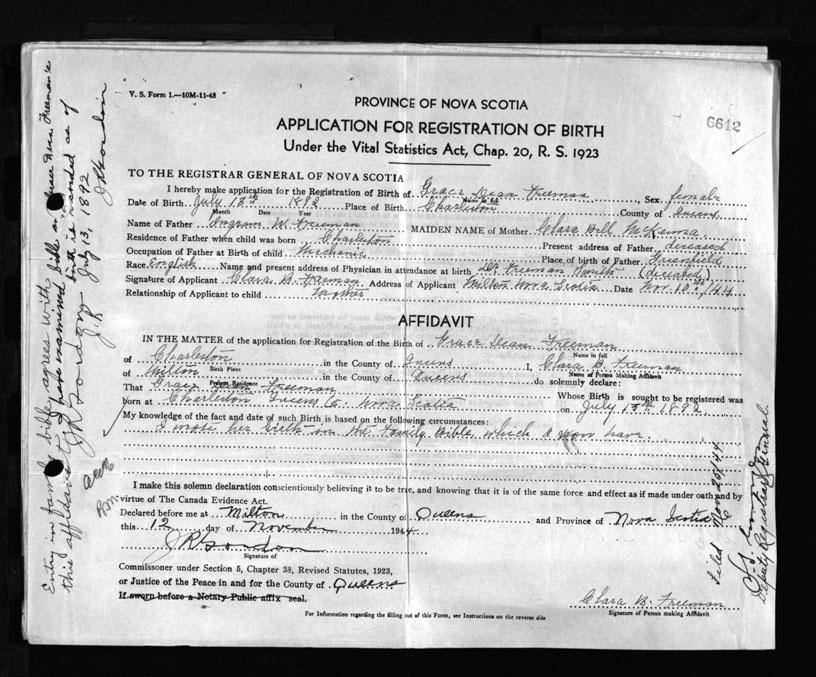 V. S. Form 1.—10M-11-43
6612
PROVINCE OF NOVA SCOTIA
APPLICATION FOR REGISTRATION OF BIRTH
Under the Vital Statistics Act, Chap. 20, R. S. 1923
TO THE REGISTRAR GENERAL OF NOVA SCOTIA
I hereby make application for the Registration of Birth of Grace Dean Freeman, Sex female
Name in full
Date of Birth July 13th 1892 Place of Birth Charleston County of Queens
Month Date Year
Name of Father Ingram W. Freeman MAIDEN NAME of Mother Clara Bell McKenna
Residence of Father when child was born Charleston Present address of Father deceased
Occupation of Father at Birth of child Mechanic Place of birth of Father Greenfield
Race English Name and present address of Physician in attendance at birth Dr Freeman Smith (deceased)
Signature of Applicant Clara B Freeman Address of Applicant Milton Nova Scotia Date Nov. 10th/44
Relationship of Applicant to child Mother
AFFIDAVIT
IN THE MATTER of the application for Registration of the Birth of Grace Dean Freeman
Name in full
of Charleston in the County of Queens I, Clara B. Freeman
Birth Place Name of Person Making Affidavit
of Milton in the County of Queens do solemnly declare:
Present Residence
That Grace Dean Freeman Whose Birth is sought to be registered was
born at Charleston Queens Co. Nova Scotia on July 13th 1892
My knowledge of the fact and date of such Birth is based on the following circumstances:
I wrote her birth in the Family Bible which I now have.
I make this solemn declaration conscientiously believing it to be true, and knowing that it is of the same force and effect as if made under oath and by
virtue of The Canada Evidence Act.
Declared before me at Milton in the County of Queens and Province of Nova Scotia
this 12 day of November 1944
J R Gordon
Signature of
Commissioner under Section 5, Chapter 38, Revised Statutes, 1923,
or Justice of the Peace in and for the County of Queens
If sworn before a Notary Public affix seal.
Clara B. Freeman
Signature of Person making Affidavit
For Information regarding the filling out of this Form, see Instructions on the reverse side
Entry in family bible agrees with
this affidavit
I have examined bible and Grace Dean Freeman's
birth is recorded as of
July 13, 1892
J R Gordon
J.P.
J R Gordon
Filed Nov 20/44
Deputy Registrar General.